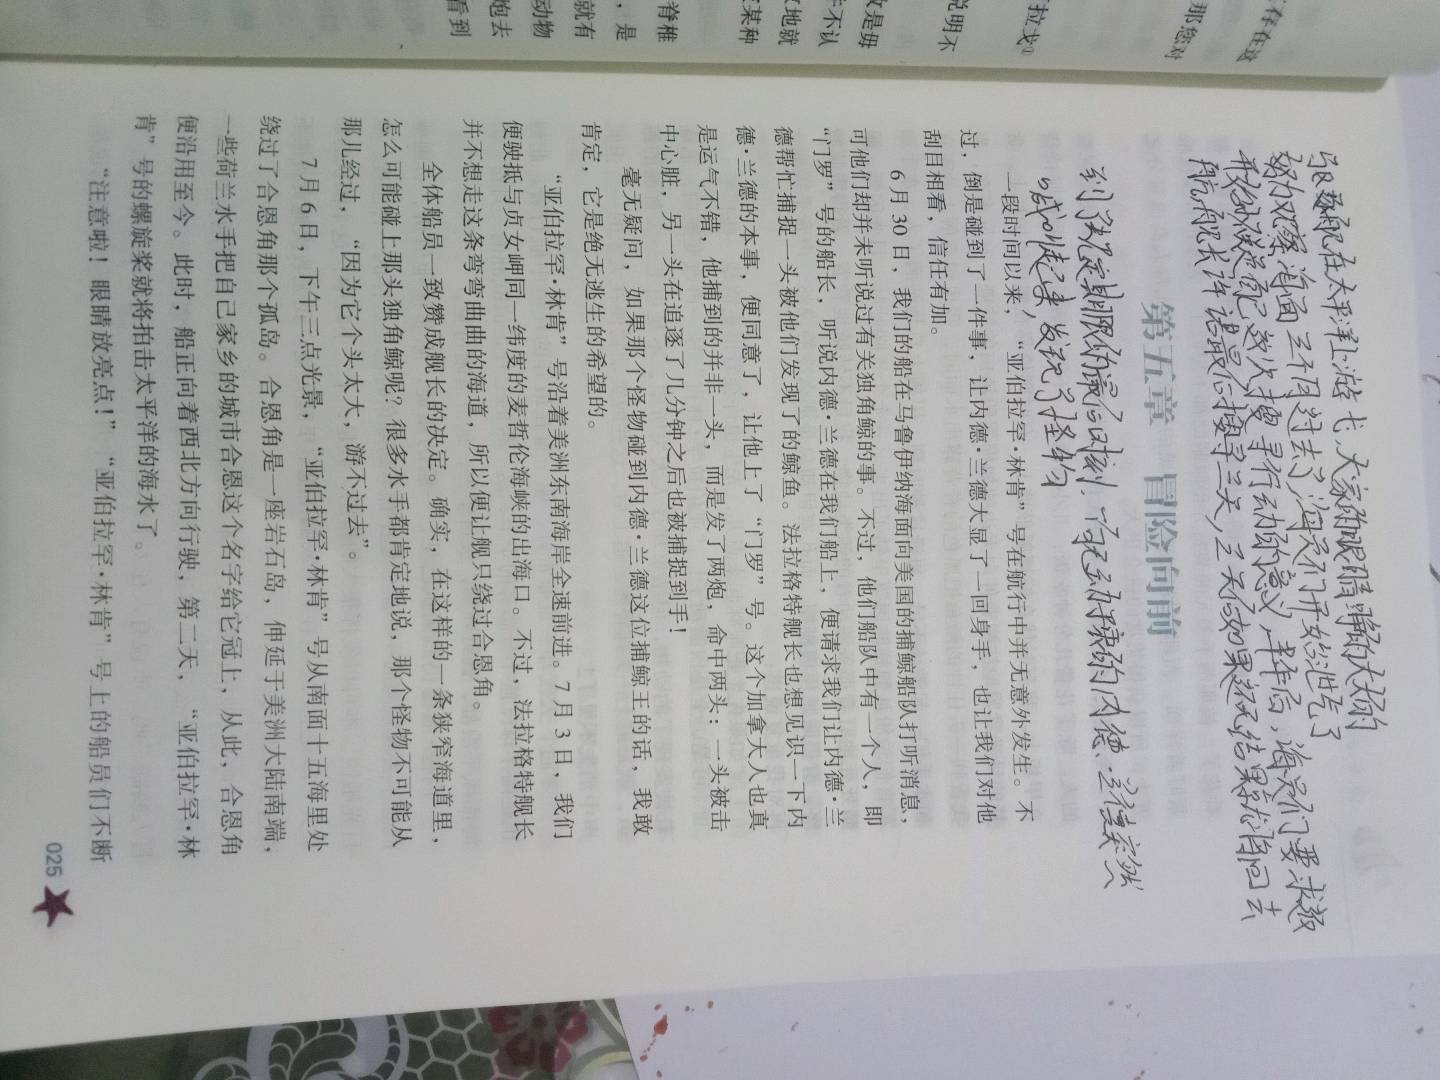 存在这
那您对
拉戈①
说明不
故是毋
并不认
地就
某种
脊椎
，是
就有
动物
跑去
看到
舰在太平洋上游弋，大家的眼睛睁的大大的
努力观察海面三个月过去了，海员们开始泄气了
开始怀疑这次搜寻行动的意义，海员们要求返
航，舰长许诺最后搜寻三天，三天后如果还无结果就启回去
到了法定期限的最后时刻，内德·兰德突然
喊叫起来，发现了怪物
第五章 冒险向前
一段时间以来，“亚伯拉罕·林肯”号在航行中并无意外发生。不
过，倒是碰到了一件事，让内德·兰德大显了一回身手，也让我们对他
刮目相看，信任有加。
6月30日，我们的船在马鲁伊纳海面向美国的捕鲸船队打听消息，
可他们却并未听说过有关独角鲸的事。不过，他们船队中有一个人，即
“门罗”号的船长，听说内德·兰德在我们船上，便请求我们让内德·兰
德帮忙捕捉一头被他们发现了的鲸鱼。法拉格特舰长也想见识一下内
德·兰德的本事，便同意了，让他上了“门罗”号。这个加拿大人也真
是运气不错，他捕到的并非一头，而是发了两炮，命中两头：一头被击
中心脏，另一头在追逐了几分钟之后也被捕捉到手！
毫无疑问，如果那个怪物碰到内德·兰德这位捕鲸王的话，我敢
肯定，它是绝无逃生的希望的。
“亚伯拉罕·林肯”号沿着美洲东南海岸全速前进。7月3日，我们
便驶抵与贞女岬同一纬度的麦哲伦海峡的出海口。不过，法拉格特舰长
并不想走这条弯弯曲曲的海道，所以便让舰只绕过合恩角。
全体船员一致赞成舰长的决定。确实，在这样的一条狭窄海道里，
怎么可能碰上那头独角鲸呢？很多水手都肯定地说，那个怪物不可能从
那儿经过，“因为它个头太大，游不过去”。
7月6日，下午三点光景，“亚伯拉罕·林肯”号从南面十五海里处
绕过了合恩角那个孤岛。合恩角是一座岩石岛，伸延于美洲大陆南端，
一些荷兰水手把自己家乡的城市合恩这个名字给它冠上，从此，合恩角
便沿用至今。此时，船正向着西北方向行驶，第二天，“亚伯拉罕·林
肯”号的螺旋桨就将拍击太平洋的海水了。
“注意啦！眼睛放亮点！”“亚伯拉罕·林肯”号上的船员们不断
025